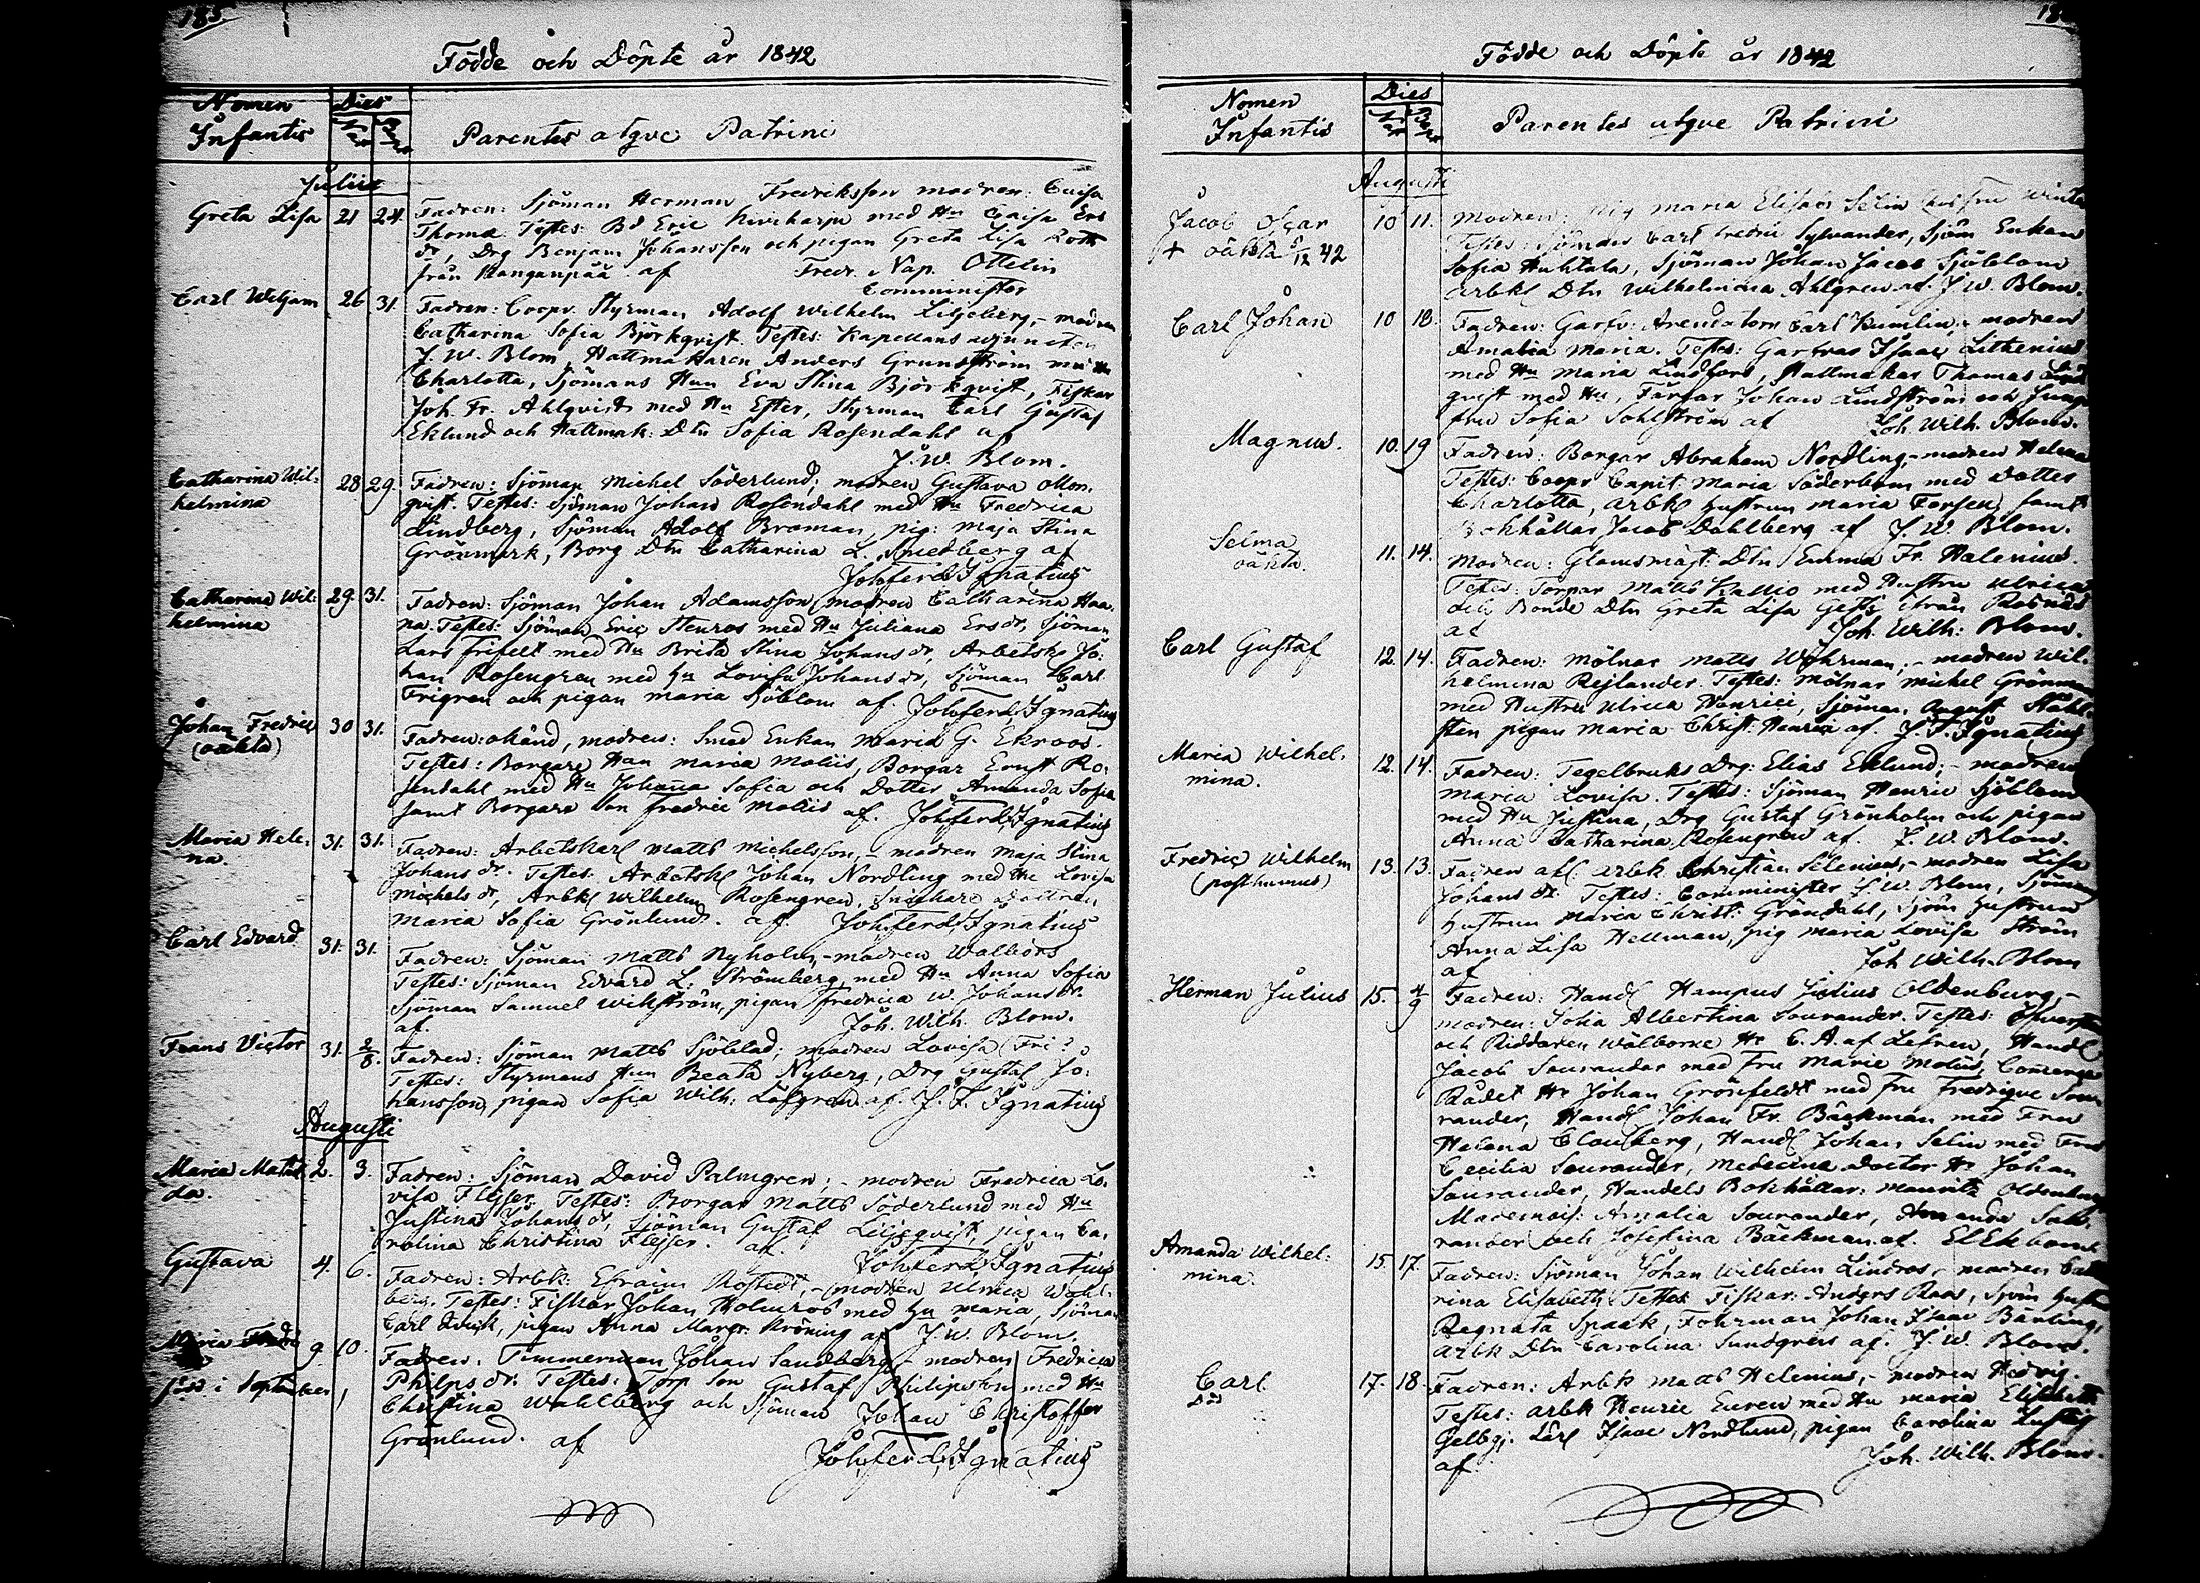 185
Födde och Döpte år 1842
Nomen Infantis
Dies
Parentes atque Patrini
Julii
Greta Lisa 21 24. Fadren: Sjöman Herman Fredriksson modren: Caisa
Thomæ. Testes: Bd Eric med Hu Caisa Ers
dr, Drg Benjam Johansson och pigan Greta Lisa
från Kanganpää af Fredr. Nap. Ottelin
Comminister
Carl Weljam 26 31. Fadren: Coopv. Styrman Adolf Wilhelm Liljeberg, - modren
Catharina Sofia Björkqvist. Testes: Kapellans adjuncten
J. W. Blom, Hattmakaren Anders Grundström med Hu
Charlotta, Sjömans Hun Eva Stina Björkqvist, Fiskar
Joh. Fr. Ahlqvist med Hu Ester, Styrman Carl Gustaf
Eklund och Hattmak: Dtn Sofia Rosendahl a
J. W. Blom.
Catharina Wil:
helmina 28 29. Fadren: Sjöman Michel Söderlund; modren Gustava Mon:
qvist. Testes: Sjöman Johan Rosendahl med Hu Fredrica
Lindberg, Sjöman Adolf Broman, pig: Maja Stina
Grönmark, Borg Dtn Catharina L. Smedberg af
Joh. Ferd. Ignatius
Catharina Wil:
helmina 29. 31. Fadren: Sjöman Johan Adamsson, modren Catharina Haa:
na. Testes: Sjöman Eric Stenros med Hu Juliana Ersdr, Sjöman
Lars Frifelt med Hu Brita Stina Johansdr, Arbetsk Jo:
han Rosengren med Hu Lovisa Johansdr, Sjöman Carl
Frigren och pigan Maria Sjöblom af. Joh. Ferd. Ignatius
Johan Fredric
(oäkta) 30 31. Fadren: okänd, modren: Smed Enkan Maria G. Ekroos.
Testes: Borgare Hun Maria Moliis, Borgar Ernst Ro:
sendahl med Hu Johanna Sofia och Dotter Amanda Sofia
samt Borgare Son Fredric Moliis af. Joh. Ferd. Ignatius
Maria Hele:
na. 31. 31. Fadren: Arbetskarl Matts Michelsson, - modren Maja Stina
Johansdr. Testes: Arbetsk Johan Nordling med Hu Lovisa
Michelsdr, Arbk Wilhelm Rosengren, dottren
Maria Sofia Grönlund. af. Joh. Ferd. Ignatius
Carl Edvard 31. 31. Fadren: Sjöman Matts Nyholm, - modren Walbors
Testes: Sjöman Edvard L. Strömberg med Hu Anna Sofia
Sjöman Samuel Wikström, pigan Fredrica W. Johansdr.
af. Joh. Wilh. Blom.
Frans Victor 31. 2/8. Fadren: Sjöman Matts Sjöblad; modren Lovisa (Fri?
Testes: Styrmans Hun Beata Nyberg, Drg Gustaf Jo:
hansson, pigan Sofia Wilh. Löfgren af. J. F. Ignatius
Augusti
Maria Matil
da. 2. 3. Fadren: Sjöman David Palmgren; - modren Fredrica Lo:
visa Flejser. Testes: Borgar Matts Söderlund med Hu
Justina Johansdr, Sjöman Gustaf Liljeqvist, pigan Ca:
rolina Christina Flejser. af.
Joh. Ferd. Ignatius
Gustava 4. 6. Fadren: Arbk: Efraim Rostedt, - modren Ulrica Wahl:
berg. Testes: Fiskar Johan Holmros med Hu Maria, Sjöman
Carl Qvick, pigan Anna Margr. Kröning af J. W. Blom.
Maria 9 10. Fadren. Timmerman Johan Sandberg, - modren Fredrica
född i September Philpsdr. Testes: Torp Son Gustaf Philipsson med Hu
Christina Wahlberg och Sjöman Johan Christoffer
Grönlund. af
Joh. Ferd. Ignatius
Födde och Döpte år 1842
Nomen Infantis
Dies
Parentes atque Patrini
Augusti
Jacob Oscar
+ oäkta 5/12 42 10 11. Modren: Pig Maria Elisab Selin
Testes: Sjöman Carl Fredric Sylvander, Sjöm Enkan
Sofia Huhtala, Sjöman Johan Jacob Sjöblom
arbk Dtn Wilhelmina Ahlgren af. J. W. Blom.
Carl Johan 10 18. Fadren: Garfv: Arendatorn Carl Kumlin, - modren
Amalia Maria. Testes: Garfvar Isaac Lithenius
med Hu Maria Lindfors, Hattmakar Thomas Lind
qvist med Hu, Färgar Johan Lindström och Jung
fru Sofia Sohlström af Joh. Wilh. Blom.
Magnus. 10. 19 Fadren: Borgar Abraham Nordling, - modren Helena
Testes: Coopv Capit: Maria Söderbom med Dotter
Charlotta, arbk Hustrun Maria Forsen, samt
Bokhållar Jacob Dahlberg af J. W. Blom.
Selma
oäkta. 11. 14. Modren: Glasmäst: Dtn Emma Fr. Walenius.
Testes: Torpar Matts Kallio med Hustru Ulrica
och Bonde Dtn Greta Lisa från Rosnäs
af Joh. Wilh: Blom.
Carl Gustaf 12. 14. Fadren: Mölnar Matts Wehrman, - modren Wil:
helmina Rejlander. Testes: Mölnar Michel Grönman
med Hustru Ulrica Henrici, Sjöman August Ståhl:
sten pigan Maria Christ: Henrici af. J. F. Ignatius
Maria Wilhel:
mina. 12. 14. Fadren: Tegelbruks Drg: Elias Eklund; - modren
Maria Lovisa. Testes: Sjöman Henric Sjöblom
med Hu Justina, Drg Gustaf Grönholm och pigan
Anna Catharina Rosengren af. J. W. Blom.
Fredric Wilhelm
(posthumus) 13. 13. Fadren afl: arbk Christian Selenius, - modren Lisa
Johansdr. Testes: Comminister J. W. Blom, Sjöman
Hustrun Maria Christ: Gröndahl, Sjöm Hustrun
Anna Lisa Hellman, pig Maria Lovisa Ström
af Joh Wilh. Blom
Herman Julius 15. 4/9 Fadren: Handl Hampus Julius Oldenburg, -
modren: Sofia Albertina Sourander. Testes: Öfversten
och Riddaren Wälborne Hr C. A. af Lefren, Handl
Jacob Sourander med Fru Marie Molin, Comerse
Rådet Hr Johan Grönfeldt med Fru Fredrique Sou
rander, Handl Johan Fr. Bäckman med Fru
Helena Clouberg, Handl Johan Selin med Fru
Cecilia Sourander, Medecine Doctor Hr Johan
Sourander, Handels Bokhållar: Mauritz Oldenburg
Mademois: Amalia Sourander, Amanda Sou:
rander och Josefina Bäckman af. El Ekbom
Amanda Wilhel:
mina. 15. 17. Fadren: Sjöman Johan Wilhelm Lindros, - modren Catha
rina Elisabeth. Testes Fiskar: Anders Roos, Sjöm Hust
Regnata Spaak, Fohrman Johan Isaac Bärling,
arbk Dtn Carolina Sundgren af. J. W. Blom.
Carl
Död 17. 18. Fadren: Arbk Matts Helenius, - modren Hedvig.
Testes: arbk Henric Euren med Hu Maria Elisabeth
Gelbg: Lärl Isaac Nordlund, pigan Carolina Lustig
af. Joh. Wilh. Blom.